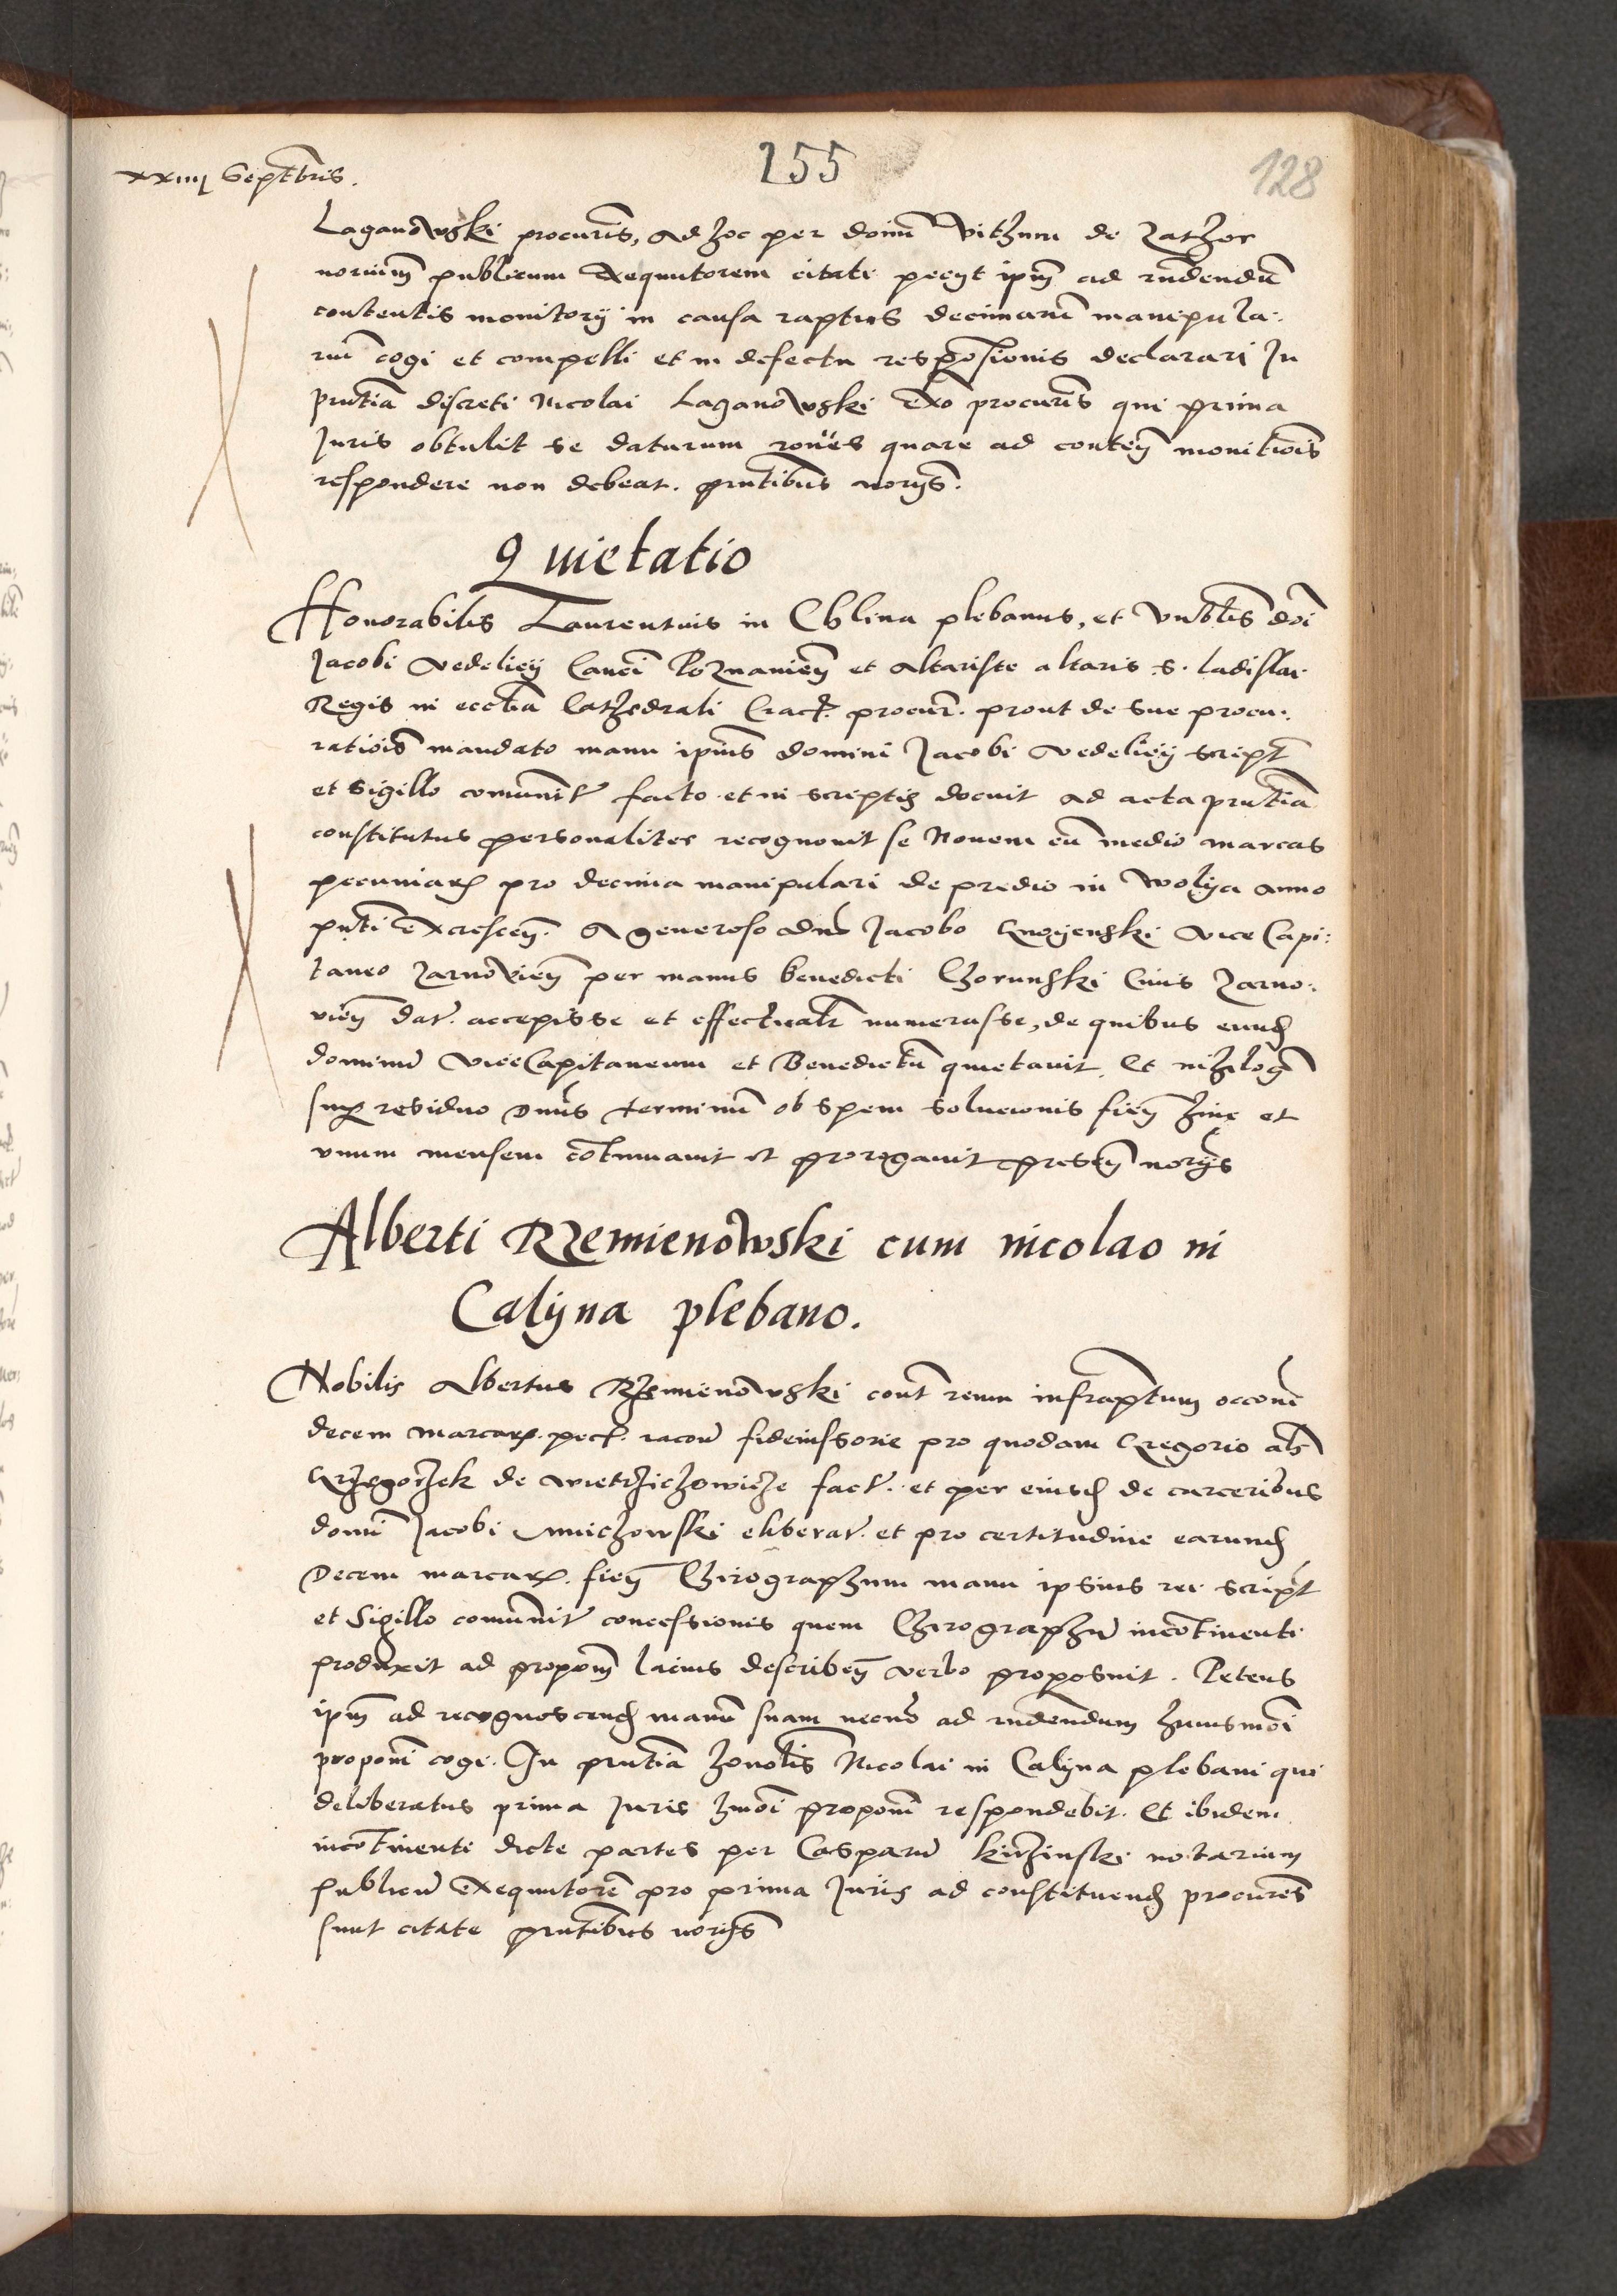 xxiiij Septembris.
155
128
Laganowski procuris, ad hoc per dominum Vithum de Zathor
norium publicum exequutorem citati pecijt ipm ad rndendum
contentis monitorij in causa raptus decimarum manipula:
rium cogi et compelli et in defectu responsionis declarari In
pntia discreti Nicolai Laganowski Exo procuris qui prima
Juris obtulit se daturum rones quare ad conten monitiois
respondere non debeat. pntibus norijs.
Quietatio
Honorabilis Laurentius in Chlina plebanus, et vnblis dni
Jacobi Vedelicij Canci Poznanien et altariste altaris S. ladislai
Regis in ecclia Cathedrali Crac procur. prout de sue procu:
ratiois mandato manu ipius domini Jacobi Vedelicij script
et sigillo comunit facto et in scriptis docuit ad acta pntia
constitutus personaliter recognouit se Nouem cum medio marcas
pecuniar pro decima manipulari de predio in Wolya anno
pnti excrescen. A generoso dno Jacobo Gnoyenski vice Capi:
taneo Zarnowien per manus benedicti Chorunski Ciuis Zarno:
vien dat. accepisse et effectualr numerasse, de quibus eund
dominum viceCapitaneum et Benedictum quietauit. Et nihilog
sup residuo vnius terminum ob spem solucionis fien hinc et
vnum mensem continuauit et prorogauit presen norijs
Alberti Rzemienowski cum nicolao in
Calyna plebano.
Nobilis Albertus Rzemienowski cont reum infrascptum occone
decem marcar. pec. racone fideiussorie pro quodam Gregorio als
Grzegorzek de Wietrzichowicze fact. et per eiusd de carceribus
domi Jacobi Michowski eliberat. et pro certitudine earund
Decem marcar. fien Chirographum manu ipsius rei script
et Sigillo comunit concessionis quem Chirographum incontinenti
produxit ad propom lacius describen verbo proposuit. Petens
ipm ad recognoscend manum suam necno ad rndendum huiusmoi
proponi cogi. In pntia honolis Nicolai in Calyna plebani qui
deliberatus prima Juris hmoi proponi respondebit. Et ibidem
incontinenti dicte partes per Casparum notarium
publicum exequutorem pro prima Juris ad constituend procures
sunt citate pntibus norijs